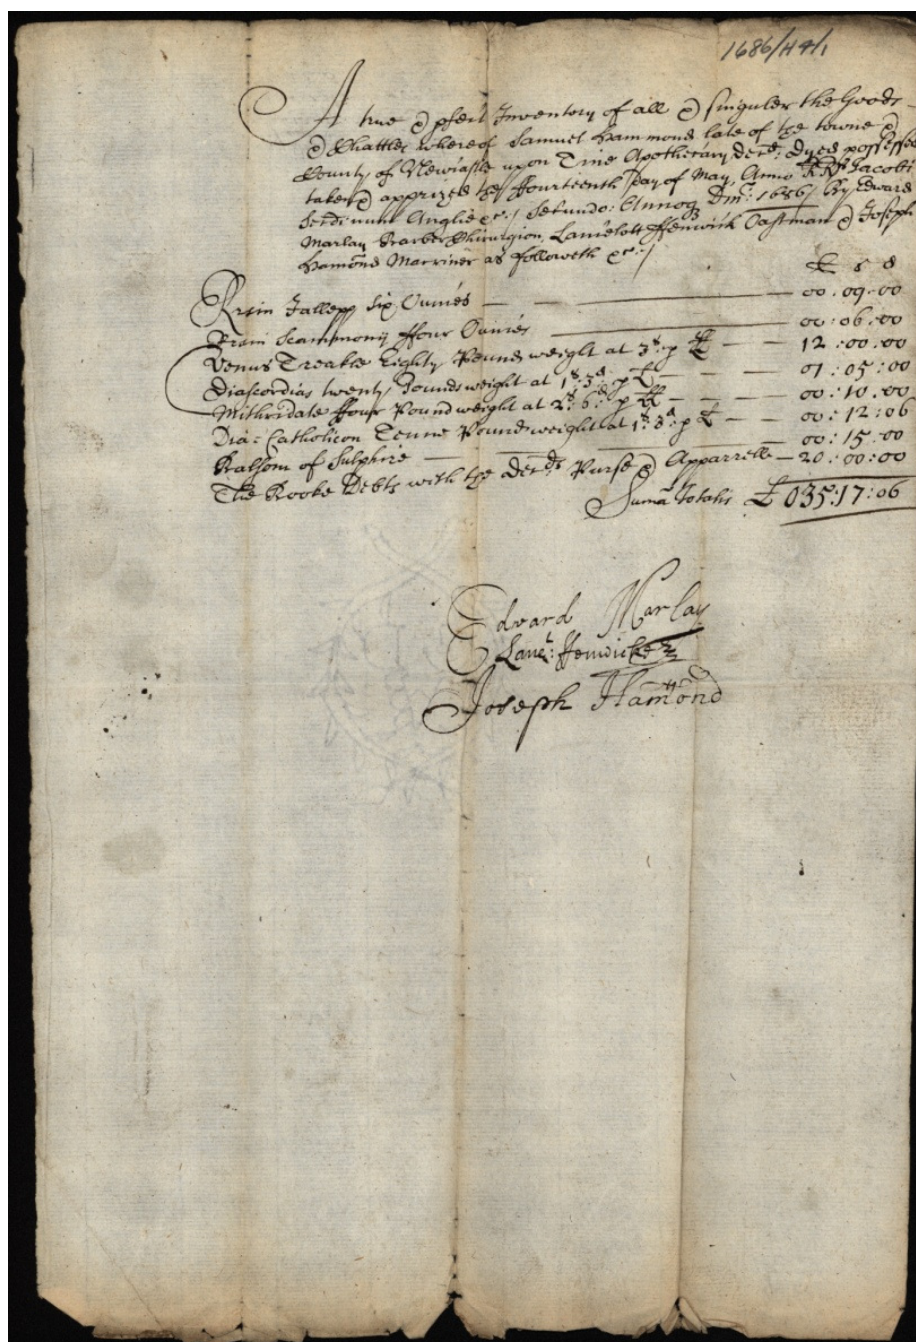 1686/H4/1
A true & p̱fect Inventory of all & singuler the Goods
& Chattles whereof Samuel Hammond late of the towne &
County of Newcastle upon Tine Apothecary decd: dyed possessed
taken & apprized the ffourteenth day of May, Anno RRs Jacobi
Secdi nunc Angliæ &c:/ Secundo: Annoq Dm: 1686/ By Edward
Marlay Barber Chirurgion, Lancelott ffenwick Oastman & Joseph
Hamond Marriner as followeth &c:/
£ s d
Resin Jallepp Six Ounces — 00:09:00
Resin Scammony ffour Ounces — 00:06:00
Venus Treakle Eighty Pound weight at 3s: p li — 12:00:00
Diascordias twenty Pounds weight at 1s:3d: p li — 01:05:00
Mithridate ffour Pound weight at 2s:6d: p li — 00:10:00
Dia: Catholicon Tenne Pound weight at 1s:3d: p li — 00:12:06
Balsom of Sulphire — 00:15:00
The Booke Debts with the decds Purse & Apparrelle — 20:00:00
Suma Totalis £ 035:17:06
Edward Marlay
Lanc: ffenwicke
Joseph Hamond